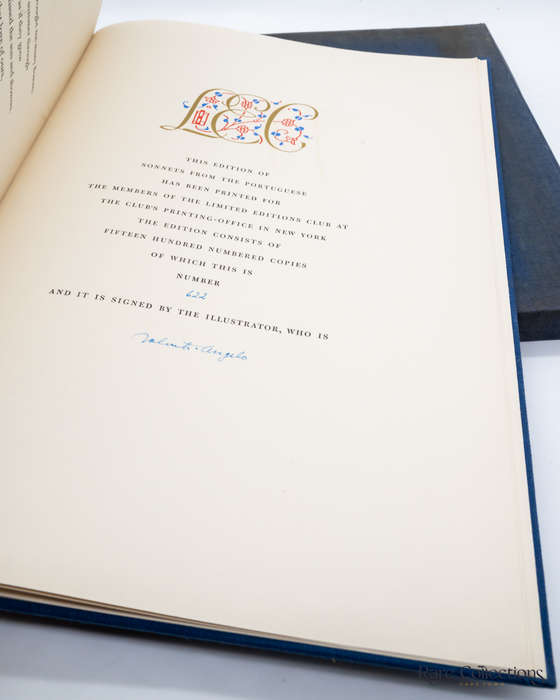 LEC
THIS EDITION OF
SONNETS FROM THE PORTUGUESE
HAS BEEN PRINTED FOR
THE MEMBERS OF THE LIMITED EDITIONS CLUB AT
THE CLUB'S PRINTING-OFFICE IN NEW YORK
THE EDITION CONSISTS OF
FIFTEEN HUNDRED NUMBERED COPIES
OF WHICH THIS IS
NUMBER
622
AND IT IS SIGNED BY THE ILLUSTRATOR, WHO IS
Valenti Angelo
Rare Collections